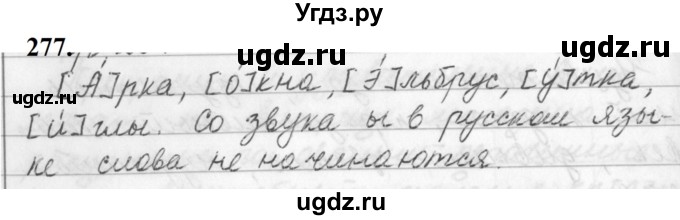 Угдз.ру
277.
ugdz.ru ugdz.ru
[А́]рка, [о́]кна, [Э́]льбрус, [у́]тка,
[и́]глы. Со звука ы в русском язы-
ке слова не начинаются.
ugdz.ru ugdz.ru